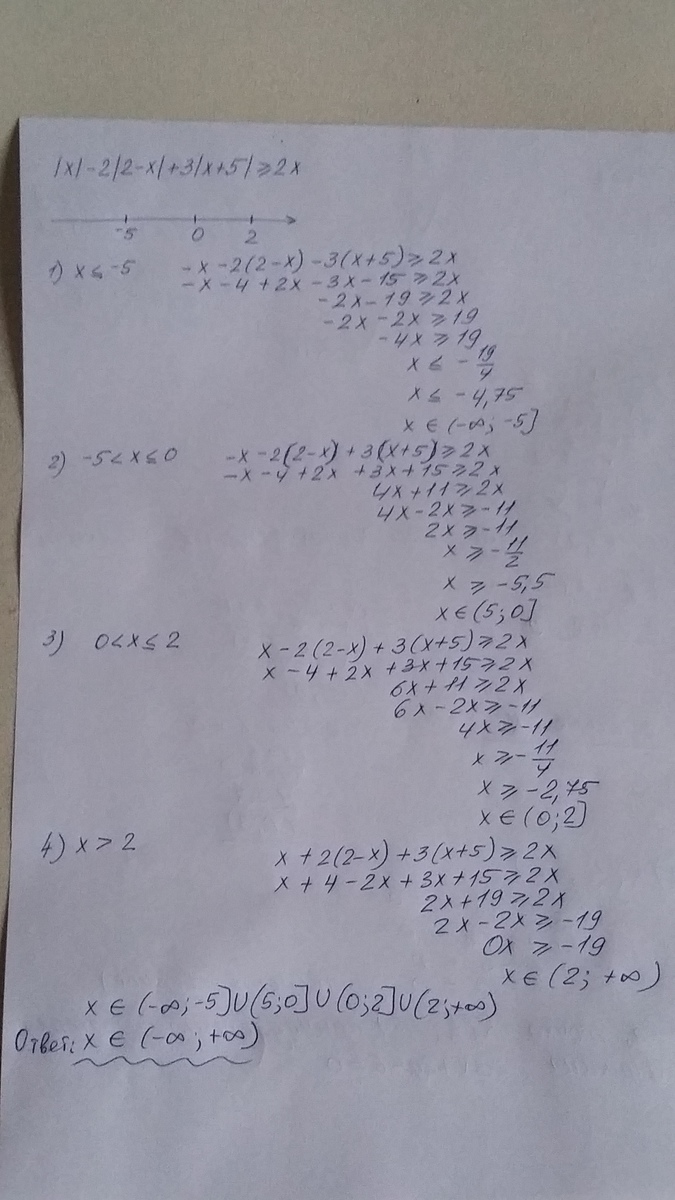 |x|-2|2-x|+3|x+5|⩾2x
-5 0 2
1) x⩽-5 -x-2(2-x)-3(x+5)⩾2x
-x-4+2x-3x-15⩾2x
-2x-19⩾2x
-2x-2x⩾19
-4x⩾19
x⩽-19/4
x⩽-4,75
x∈(-∞;-5]
2) -5<x⩽0 -x-2(2-x)+3(x+5)⩾2x
-x-4+2x+3x+15⩾2x
4x+11⩾2x
4x-2x⩾-11
2x⩾-11
x⩾-11/2
x⩾-5,5
x∈(5;0]
3) 0<x⩽2 x-2(2-x)+3(x+5)⩾2x
x-4+2x+3x+15⩾2x
6x+11⩾2x
6x-2x⩾-11
4x⩾-11
x⩾-11/4
x⩾-2,75
x∈(0;2]
4) x>2 x+2(2-x)+3(x+5)⩾2x
x+4-2x+3x+15⩾2x
2x+19⩾2x
2x-2x⩾-19
0x⩾-19
x∈(2;+∞)
x∈(-∞;-5]∪(5;0]∪(0;2]∪(2;+∞)
Ответ: x∈(-∞;+∞)